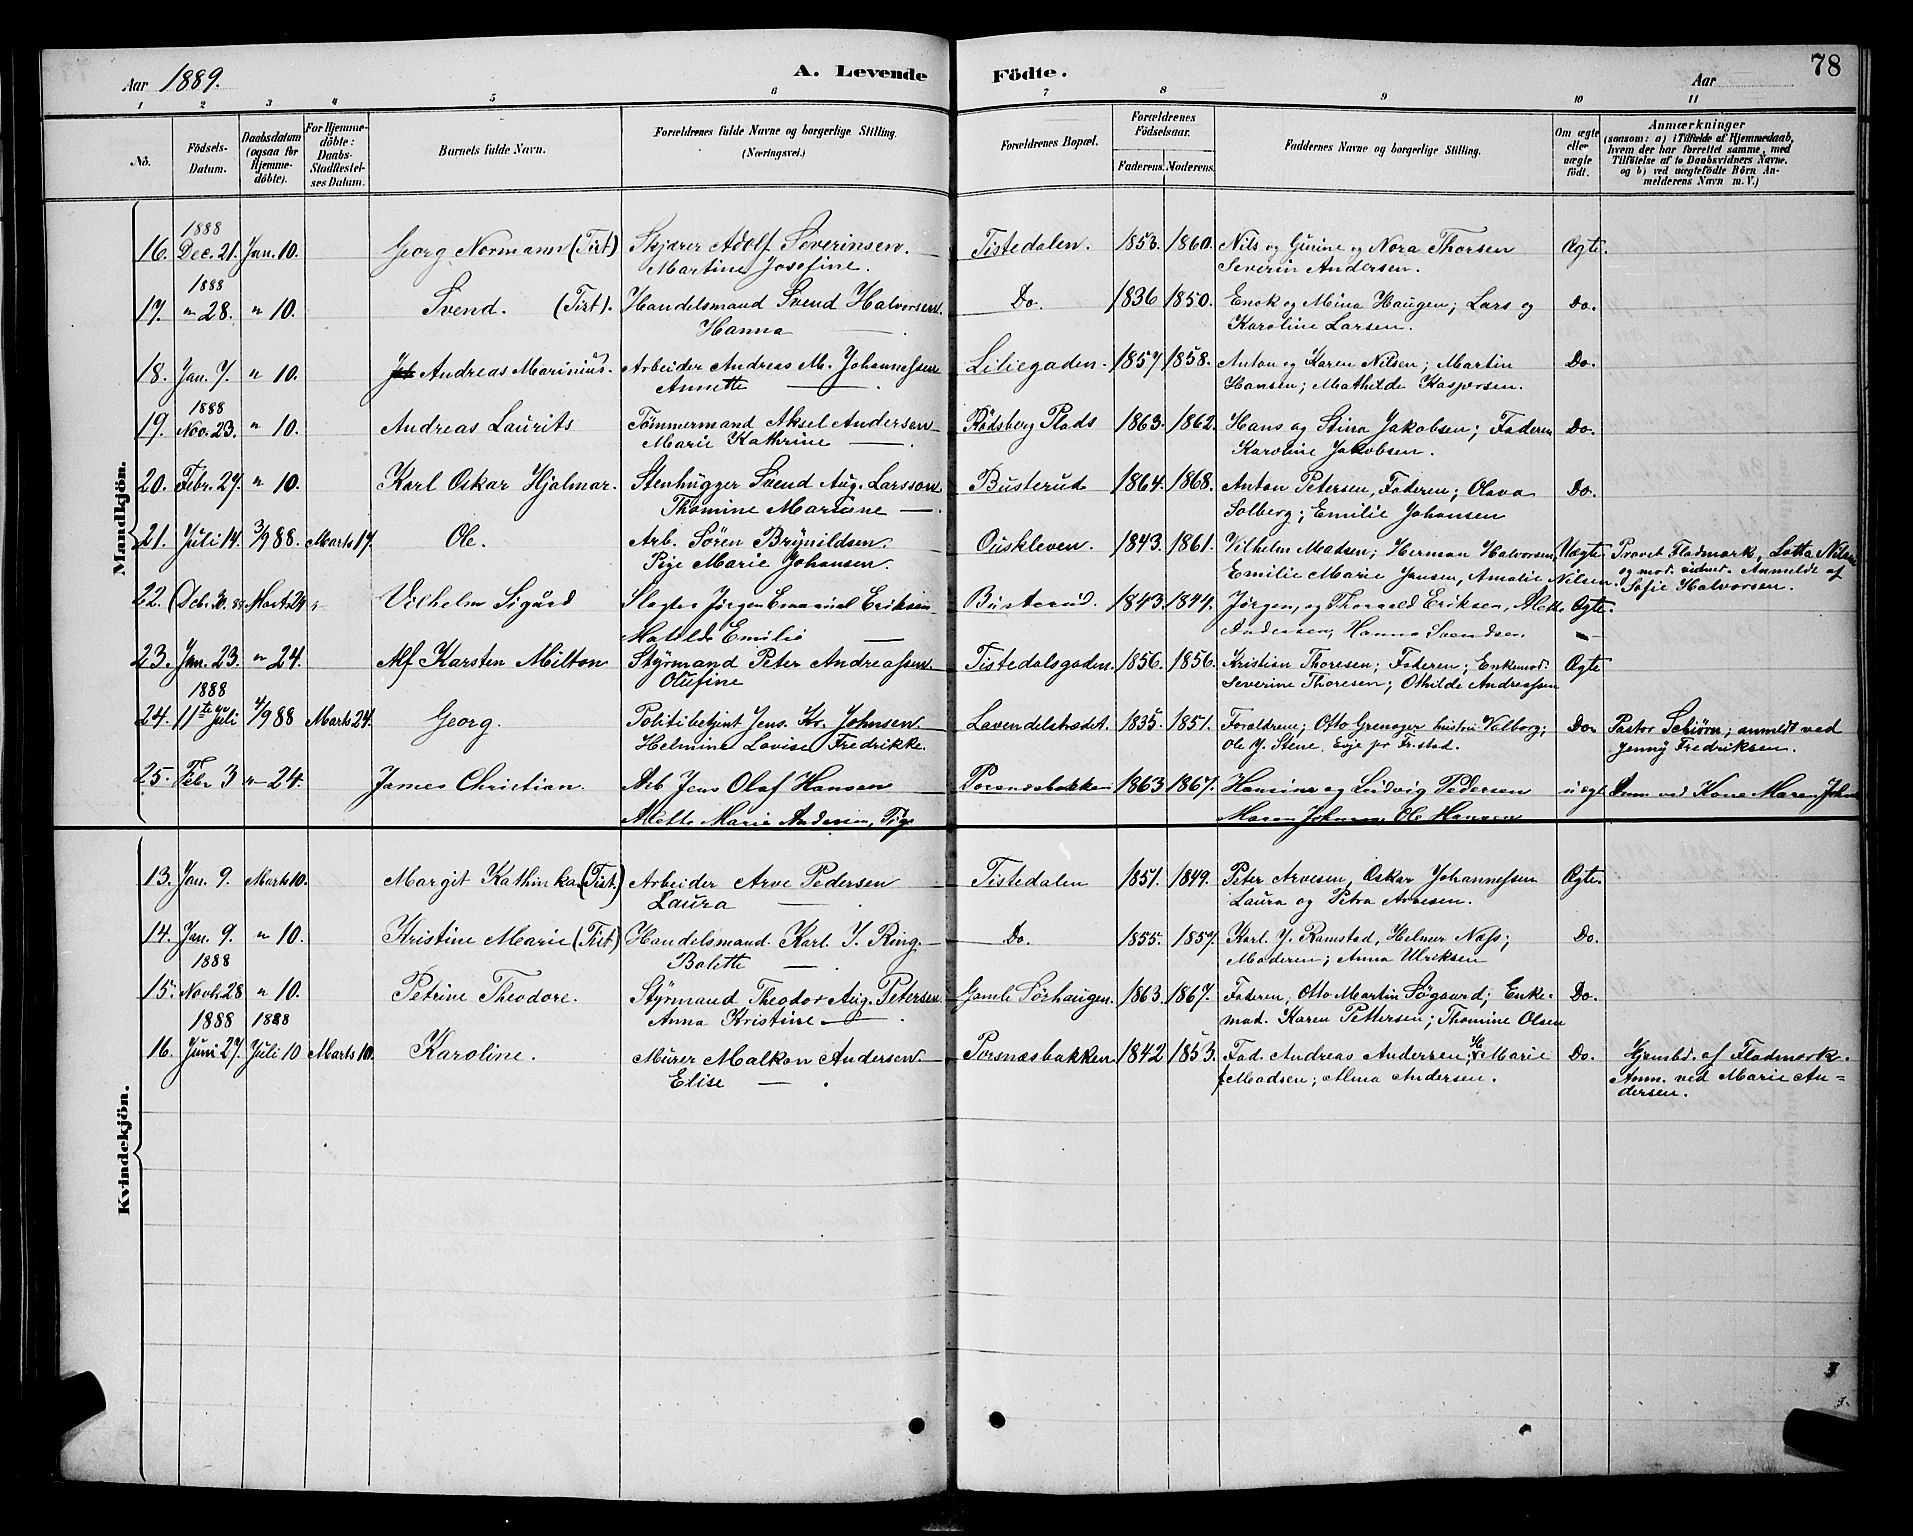 Aar 1889. A. Levende Födte. Aar 78
1 2 3 4 5 6 7 8 9 10 11
No. Födsels-Datum. Daabsdatum (ogsaa for Hjemmedöbte). For Hjemmedöbte: Daabs-Stadfæstelses Datum. Barnets fulde Navn. Forældrenes fulde Navne og borgerlige Stilling. (Næringsvei.) Forældrenes Bopæl. Forældrenes Födselsaar. Faderens. Moderens. Faddernes Navne og borgerlige Stilling. Om ægte eller uægte födt. Anmærkninger (saasom: a) i Tilfælde af Hjemmedaab, hvem der har forrettet samme, med Tilföielse af to Daabsvidners Navne, og b) ved uægtefödte Börn Anmelderens Navn m. V.)
Mandkjön.
1888
16. Dec. 21. Jan. 10. Georg Normann (Tist) Skjærer Adolf Severinsen. Tistedalen. 1853. 1860. Nils og Gurine og Nora Thorsen Ægte.
Martine Josefine. Severin Andersen.
1888
17. " 28. " 10. Svend. (Tist). Handelsmand Svend Halvorsen. Do. 1836 1850. Enok og Mina Haugen; Lars og Do.
Hanna — Karoline Larsen.
18. Jan. 7. " 10. Andreas Marinius. Arbeider Andreas M. Johannessen Liliegaden. 1857 1858. Anton og Karen Nilsen; Martin Do.
Annette — Hansen; Mathilde Kaspersen.
1888
19. Nov. 23. " 10. Andreas Laurits Tömmermand Aksel Andersen Rödsberg Plads 1863. 1862. Hans og Stina Jakobsen; Faderen Do.
Marie Kathrine — Karoline Jakobsen.
20. Febr. 27. " 10. Karl Oskar Hjalmar. Stenhugger Svend Aug. Larsson Busterud 1864. 1868. Anton Petersen, Faderen; Olava Do.
Thomine Mariane — Solberg; Emilie Johansen
21. Juli 14. 3/9 88. Marts 17. Ole. Arb. Sören Brynildsen. Ouskleven. 1843. 1861. Vilhelm Madsen; Herman Halvorsen, Uægte. Provst Fladmark, Lotta Nilsen
Pige Marie Johansen. Emilie Marie Jansen, Amalie Nilsen. og mod. vidnet. Anmeldt af
22. Dcb. 30. 88 Mart. 24 Vilhelm Sigurd Slagter Jörgen Emanuel Eriksen Busterud. 1843. 1844. Jörgen, og Thorvald Eriksen, Alette Ægte. Sofie Halvorsen.
Matilde Emilie — Andersen, Hanna Svendsen. —
23. Jan. 23. " 24. Alf Karsten Milton Styrmand Peter Andreassen. Tistedalsgaden. 1856. 1856. Kristian Thoresen; Faderen; Enkemad. Ægte
Olufine Severine Thoresen; Othilde Andreassen
1888
24. 11te Juli 4/9 88 Marts 24. Georg. Politibetjent Jens. Kr. Johnsen Lavendelstrædet. 1835. 1851. Forældrene; Otto Grenager hustru Valborg; Do. Pastor Schiörn; anmeldt ved
Helmine Lovise Fredrikke. Ole J. Stene. Evje pr Fr.stad. Jenny Fredriksen.
25. Febr 3 " 24. James Christian. Arb Jens Olaf Hansen Porsnæsbakken 1863 1867. Hansine og Ludvig Pedersen u ægt. Anm ved Kone Maren Johns
Alette Marie Andersen, Pige Maren Johnsen, Ole Hansen
Kvindekjön.
13. Jan. 9. Marts 10. Margit Kathinka (Tist.) Arbeider Arve Pedersen Tistedalen 1851. 1849. Peter Arvesen, Oskar Johannessen Ægte.
Laura — Laura og Petra Arvesen.
14. Jan. 9. " 10. Kristine Marie (Tist.) Handelsmand. Karl J. Ring. Do. 1855. 1857. Karl J. Ramstad, Helmer Næss; Do.
Bolette — Moderen; Anna Ulriksen
1888
15. Novb. 28 " 10. Petrine Theodore. Styrmand Theodor Aug. Petersen Gamle Sörhaugen. 1863. 1867. Faderen, Otto Martin Sögaard; Enke- Do.
Anna Kristine — mad. Karen Pettersen; Thomine Olsen
1888 1888
16. Juni 27. Juli 10 Marts 10. Karoline. Murer Malkon Andersen Porsnæsbakken 1842 1853. Fad. Andreas Andersen, H. Marie Do. Hjemdb. af Fladmark.
Elise — Madsen; Alma Andersen. Anm. ved Marie An-
dersen.